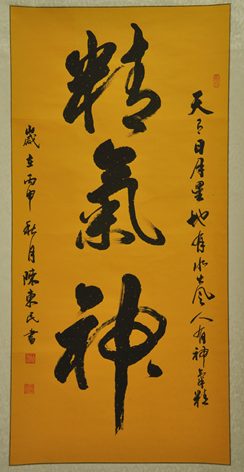 天有日月星地有水火風人有神氣精
精氣神
歲在丙申秋月陳東民書